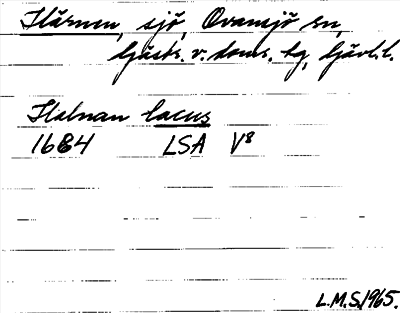 Hårmen, sjö, Ovansjö sn,
Gästr. v. doms. tg, Gävl. l.
Halnan lacus
1684 LSA V8
L.M.S. 1965.